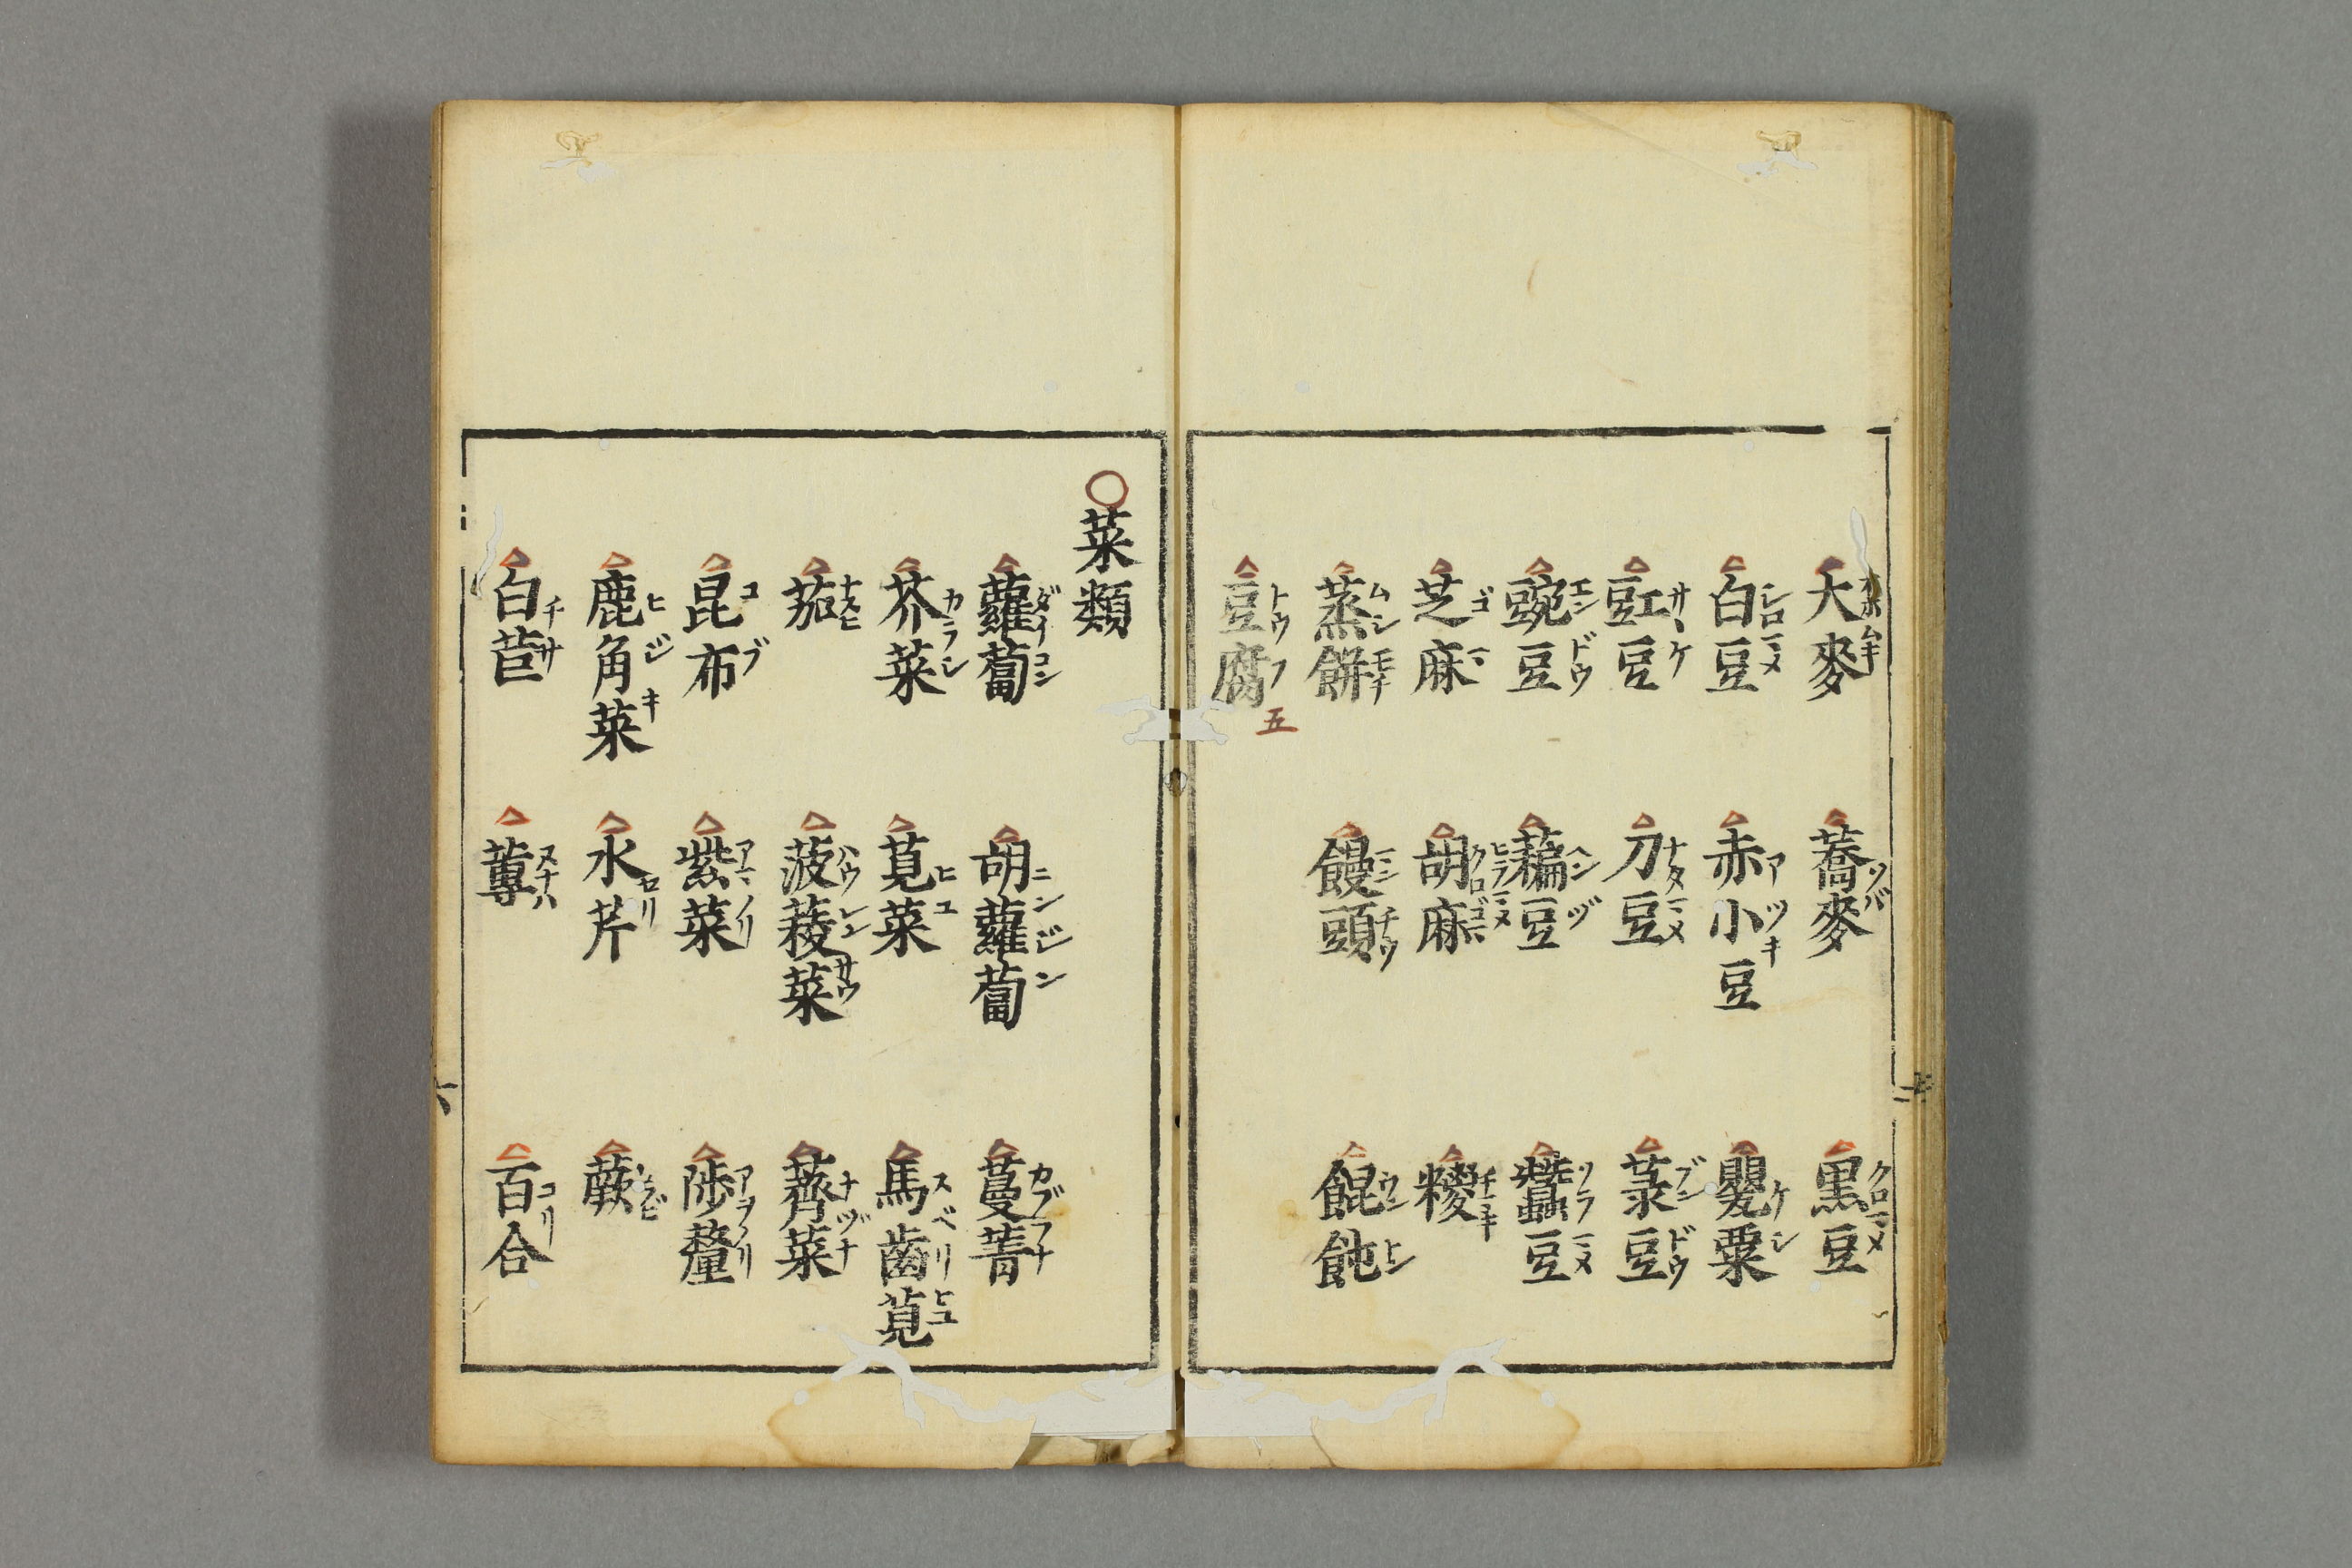 大麥 オホムギ 蕎麥 ソバ 黒豆 クロマメ
白豆 シロマメ 赤小豆 アヅキ 罌粟 ケシ
豇豆 サヽケ 刀豆 ナタマメ 菉豆 ブンドウ
豌豆 エンドウ 藊豆 ヘンヅ ヒラマメ 蠶豆 ソラマメ
芝麻 ゴマ 胡麻 クロゴマ 糉 チマキ
蒸餅 ムシモチ 饅頭 マンヂウ 餛飩 ウントン
豆腐 トウフ
五
○菜類
蘿蔔 ダイコン 胡蘿蔔 ニンジン 蔓菁 カブラナ
芥菜 カラシ 莧菜 ヒユ 馬齒莧 スベリヒユ
茄 ナスビ 菠薐菜 ハウレンサウ 薺菜 ナヅナ
昆布 コブ 紫菜 アマノリ 陟釐 アヲノリ
鹿角菜 ヒジキ 水芹 セリ 蕨 ワラビ
白苣 チサ 蓴 ヌナハ 百合 ユリ
六